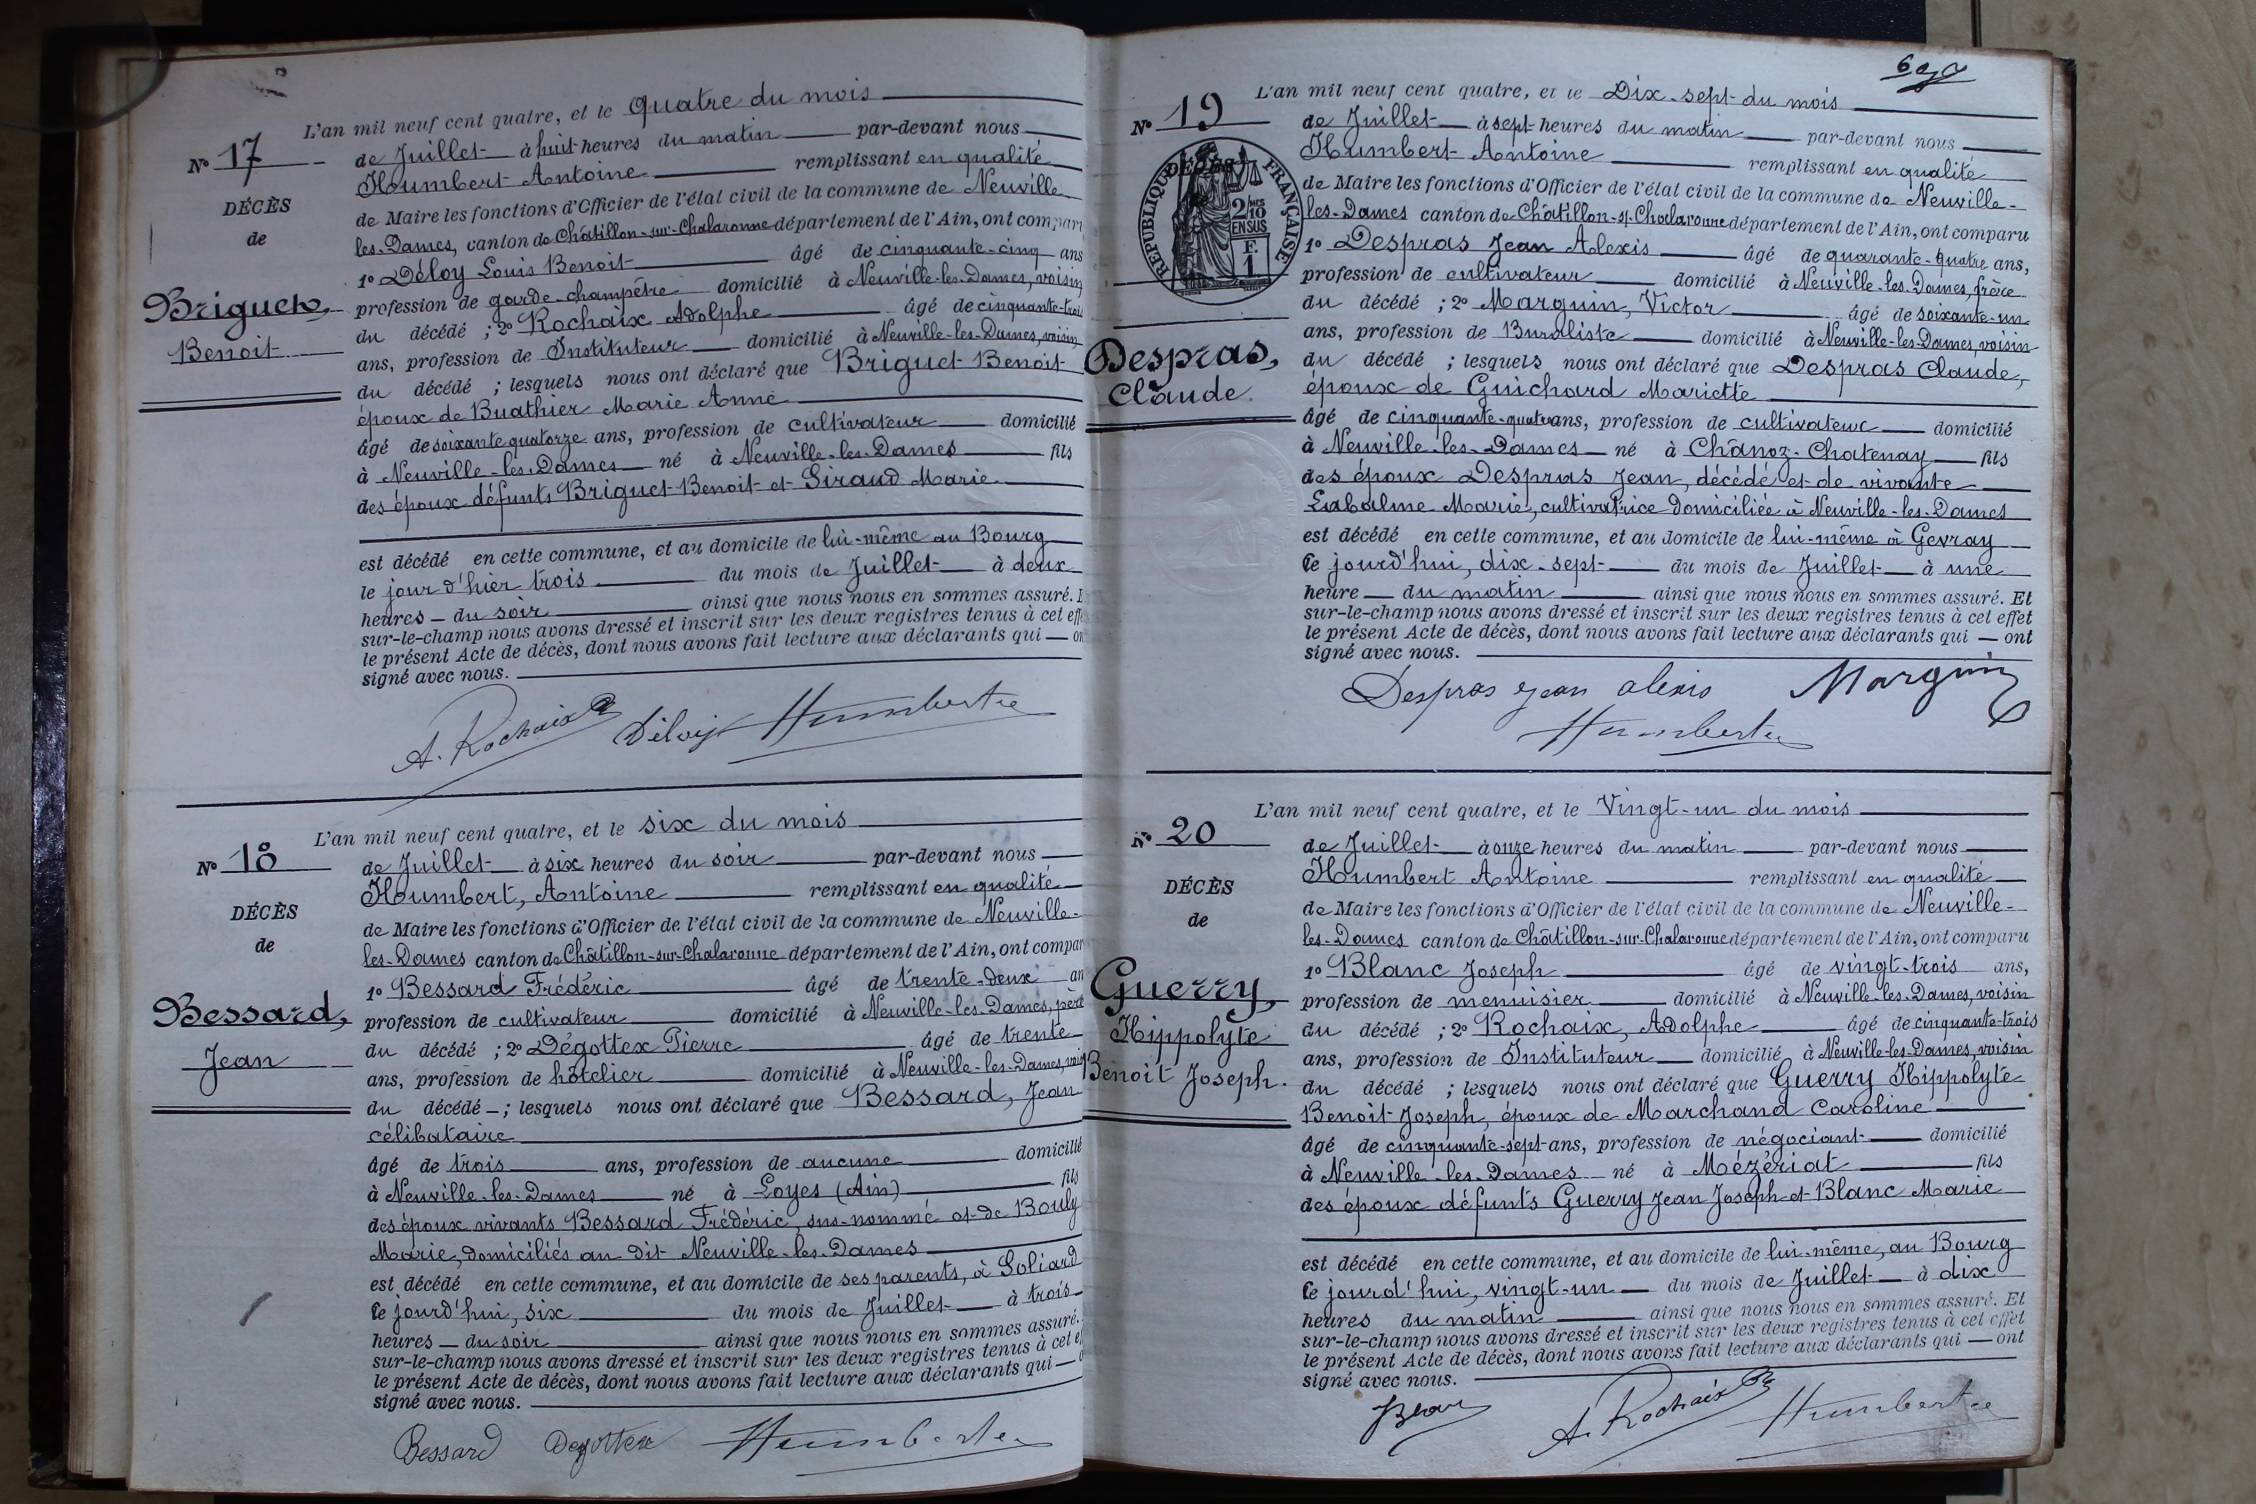 L'an mil neuf cent quatre, et le quatre du mois
N° 17
de Juillet à huit heures du matin par-devant nous
Humbert Antoine remplissant en qualité
DÉCÈS
de Maire les fonctions d'Officier de l'état civil de la commune de Neuville
de
les-Dames, canton de Châtillon-sur-Chalaronne département de l'Ain, ont comparu
1° Déloy Louis Benoit âgé de cinquante-cinq ans
Briguet,
profession de garde-champêtre domicilié à Neuville-les-Dames, voisin
du décédé ; 2° Rochaix Adolphe âgé de cinquante-trois
Benoit
ans, profession de Instituteur domicilié à Neuville-les-Dames, voisin
du décédé ; lesquels nous ont déclaré que Briguet Benoit
époux de Buathier Marie Anne
âgé de soixante quatorze ans, profession de cultivateur domicilié
à Neuville-les-Dames né à Neuville-les-Dames fils
des époux défunts Briguet Benoit et Giraud Marie
est décédé en cette commune, et au domicile de lui-même au Bourg
le jour d'hier trois du mois de Juillet à deux
heures du soir ainsi que nous nous en sommes assuré.
sur-le-champ nous avons dressé et inscrit sur les deux registres tenus à cet eff
le présent Acte de décès, dont nous avons fait lecture aux déclarants qui — on
signé avec nous.
A. Rochaix Déloy Humbert
L'an mil neuf cent quatre, et le six du mois
N° 18
de Juillet à six heures du soir par-devant nous
Humbert, Antoine remplissant en qualité
DÉCÈS
de Maire les fonctions d'Officier de l'état civil de la commune de Neuville-
de
les-Dames canton de Châtillon-sur-Chalaronne département de l'Ain, ont compar
1° Bessard Frédéric âgé de trente-deux an
Bessard,
profession de cultivateur domicilié à Neuville-les-Dames, père
du décédé ; 2° Dégottex Pierre âgé de trente
Jean
ans, profession de hôtelier domicilié à Neuville-les-Dames, voisin
du décédé — ; lesquels nous ont déclaré que Bessard, Jean
célibataire
âgé de trois ans, profession de aucune domicilié
à Neuville-les-Dames né à Loyes (Ain) fils
des époux vivants Bessard Frédéric, sus-nommé et de Bouly
Marie, domiciliés au dit Neuville-les-Dames
est décédé en cette commune, et au domicile de ses parents, à Soliard
ce jourd'hui, six du mois de Juillet à trois
heures — du soir ainsi que nous nous en sommes assuré.
sur-le-champ nous avons dressé et inscrit sur les deux registres tenus à cet ef
le présent Acte de décès, dont nous avons fait lecture aux déclarants qui —
signé avec nous.
Bessard Degottex Humbert
L'an mil neuf cent quatre, et le Dix-sept du mois
N° 19
de Juillet à sept heures du matin par-devant nous
Humbert Antoine remplissant en qualité
DÉCÈS
RÉPUBLIQUE FRANÇAISE
2/10 MES EN SUS
F. 1
de Maire les fonctions d'Officier de l'état civil de la commune de Neuville-
les-Dames canton de Châtillon-s/-Chalaronne département de l'Ain, ont comparu
1° Despras Jean Alexis âgé de quarante-quatre ans,
profession de cultivateur domicilié à Neuville-les-Dames, frère
du décédé ; 2° Marguin, Victor âgé de soixante-un
ans, profession de Buraliste domicilié à Neuville-les-Dames, voisin
Despras,
du décédé ; lesquels nous ont déclaré que Despras Claude,
Claude.
époux de Guichard Mariette
âgé de cinquante-quatre ans, profession de cultivateur domicilié
à Neuville-les-Dames né à Chânoz-Chatenay fils
des époux Despras Jean, décédé et de vivante
Labalme Marie, cultivatrice domiciliée à Neuville-les-Dames
est décédé en cette commune, et au domicile de lui-même à Gevray
ce jourd'hui, dix-sept du mois de Juillet à une
heure — du matin ainsi que nous nous en sommes assuré. Et
sur-le-champ nous avons dressé et inscrit sur les deux registres tenus à cet effet
le présent Acte de décès, dont nous avons fait lecture aux déclarants qui — ont
signé avec nous.
Despras jean alexis Marguin
Humbert
L'an mil neuf cent quatre, et le Vingt-un du mois
N° 20
de Juillet à onze heures du matin par-devant nous
Humbert Antoine remplissant en qualité
DÉCÈS
de Maire les fonctions d'Officier de l'état civil de la commune de Neuville-
de
les-Dames canton de Châtillon-sur-Chalaronne département de l'Ain, ont comparu
1° Blanc Joseph âgé de vingt-trois ans,
Guerry,
profession de menuisier domicilié à Neuville-les-Dames, voisin
Hippolyte
du décédé ; 2° Rochaix, Adolphe âgé de cinquante-trois
ans, profession de Instituteur domicilié à Neuville-les-Dames, voisin
Benoit Joseph.
du décédé ; lesquels nous ont déclaré que Guerry Hippolyte
Benoit-Joseph, époux de Marchand Caroline
âgé de cinquante-sept ans, profession de négociant domicilié
à Neuville-les-Dames né à Mézériat fils
des époux défunts Guerry Jean Joseph et Blanc Marie
est décédé en cette commune, et au domicile de lui-même, au Bourg
ce jourd'hui, vingt-un du mois de Juillet à dix
heures du matin ainsi que nous nous en sommes assuré. Et
sur-le-champ nous avons dressé et inscrit sur les deux registres tenus à cet effet
le présent Acte de décès, dont nous avons fait lecture aux déclarants qui — ont
signé avec nous.
JBlanc A. Rochaix Humbert